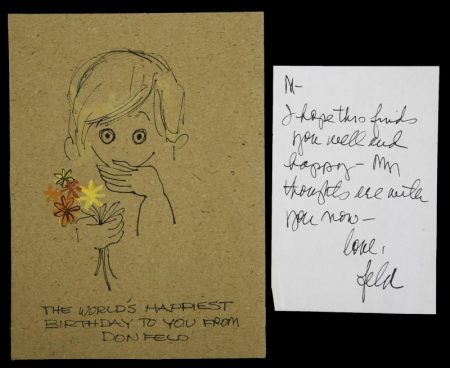 THE WORLD'S HAPPIEST
BIRTHDAY TO YOU FROM
DON FELD
M-
I hope this finds
you well and
happy - My
thoughts are with
you now -
love,
feld